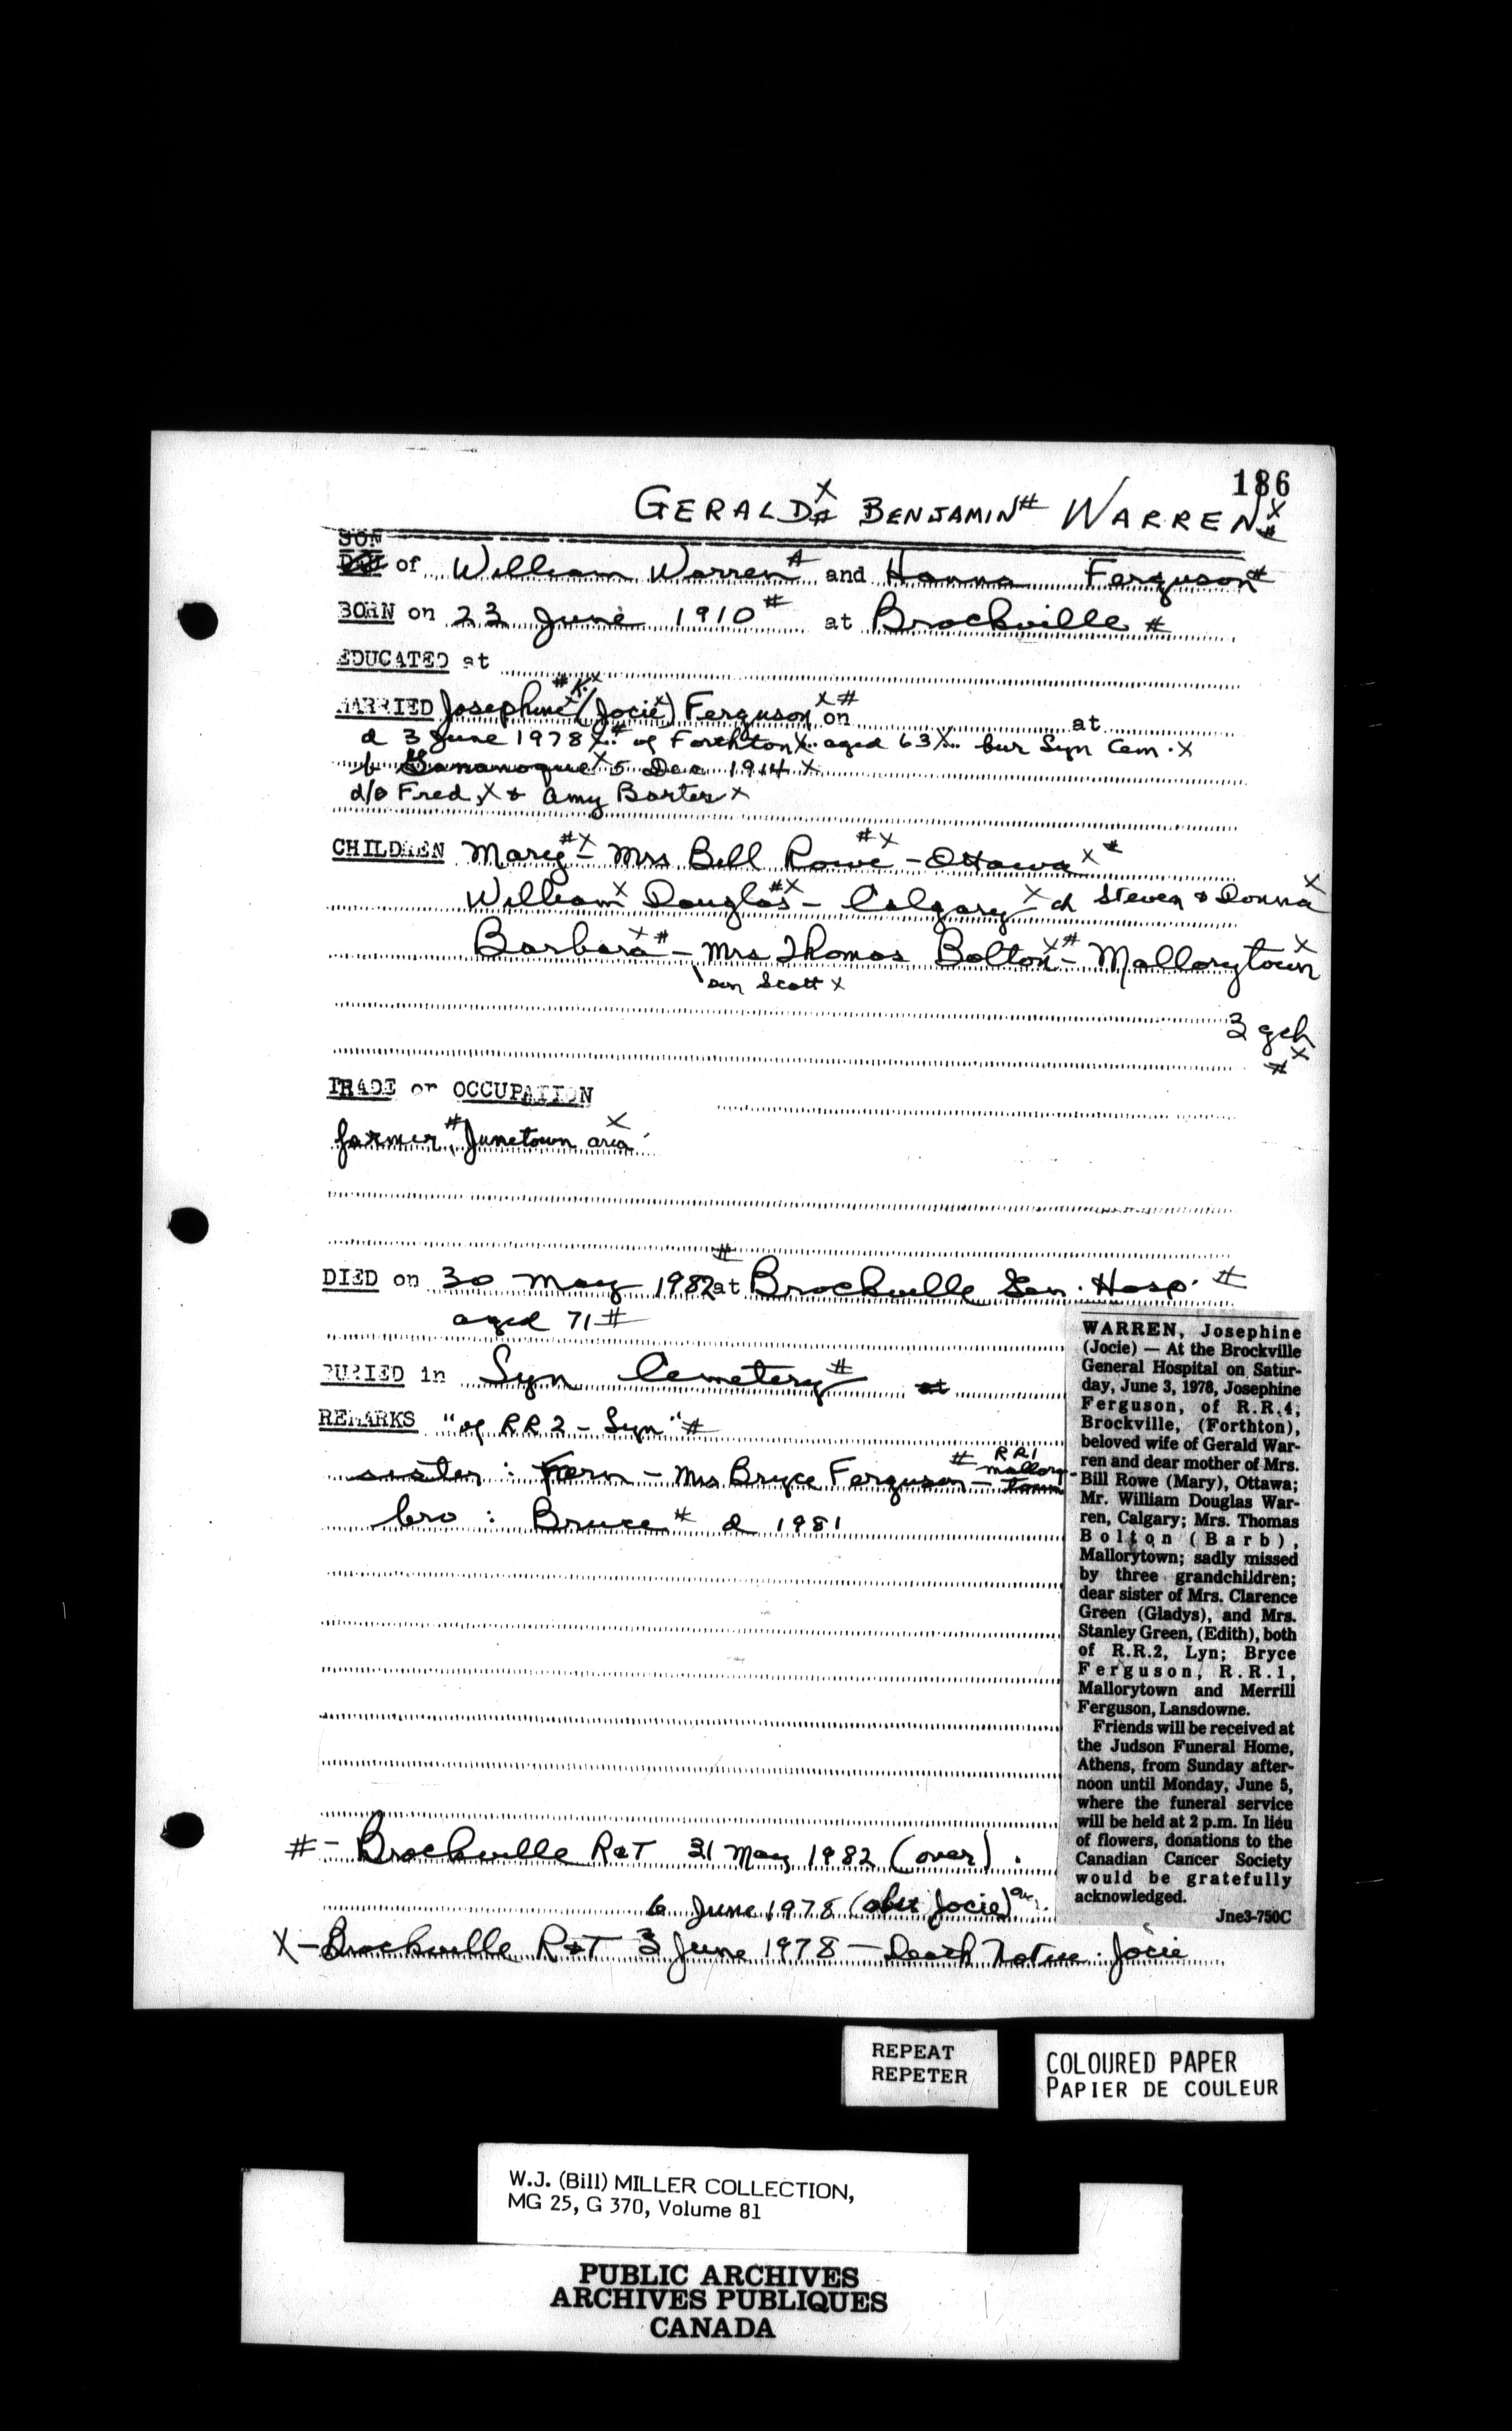 186
GERALD X# BENJAMIN # WARREN X#
SON
of William Warren # and Hanna Ferguson #
BORN on 23 June 1910 # at Brockville #
EDUCATED at
# K. X
MARRIED Josephine X (Jocie X) Ferguson X # on at
d 3 June 1978 X # of Forthton X aged 63 X bur Lyn Cem. X
b Gananoque X 5 Dec 1914 X
d/o Fred X & Amy Barter X
CHILDREN Mary # X - Mrs Bill Rowe # X - Ottawa X #
William X Douglas # X - Calgary X - ch Steven & Donna X
Barbara X # - Mrs Thomas Bolton X # - Mallorytown X
son Scott X
3 gch
# X
TRADE or OCCUPATION
farmer #, Junetown area X
DIED on 30 May 1982 # at Brockville Gen. Hosp. #
aged 71 #
BURIED in Lyn Cemetery # at
REMARKS "of RR2 - Lyn" #
sister : Fern - Mrs Bryce Ferguson # - RR1 Mallorytown
bro : Bruce # d 1981
WARREN, Josephine
(Jocie) — At the Brockville
General Hospital on Satur-
day, June 3, 1978, Josephine
Ferguson, of R.R.4,
Brockville, (Forthton),
beloved wife of Gerald War-
ren and dear mother of Mrs.
Bill Rowe (Mary), Ottawa;
Mr. William Douglas War-
ren, Calgary; Mrs. Thomas
Bolton (Barb),
Mallorytown; sadly missed
by three grandchildren;
dear sister of Mrs. Clarence
Green (Gladys), and Mrs.
Stanley Green, (Edith), both
of R.R.2, Lyn; Bryce
Ferguson, R.R.1,
Mallorytown and Merrill
Ferguson, Lansdowne.
Friends will be received at
the Judson Funeral Home,
Athens, from Sunday after-
noon until Monday, June 5,
where the funeral service
will be held at 2 p.m. In lieu
of flowers, donations to the
Canadian Cancer Society
would be gratefully
acknowledged.
Jne3-750C
# - Brockville R&T 31 May 1982 (over).
6 June 1978 (obit Jocie)
X - Brockville R&T 3 June 1978 - Death Notice. Jocie
REPEAT
REPETER
COLOURED PAPER
PAPIER DE COULEUR
W.J. (Bill) MILLER COLLECTION,
MG 25, G 370, Volume 81
PUBLIC ARCHIVES
ARCHIVES PUBLIQUES
CANADA